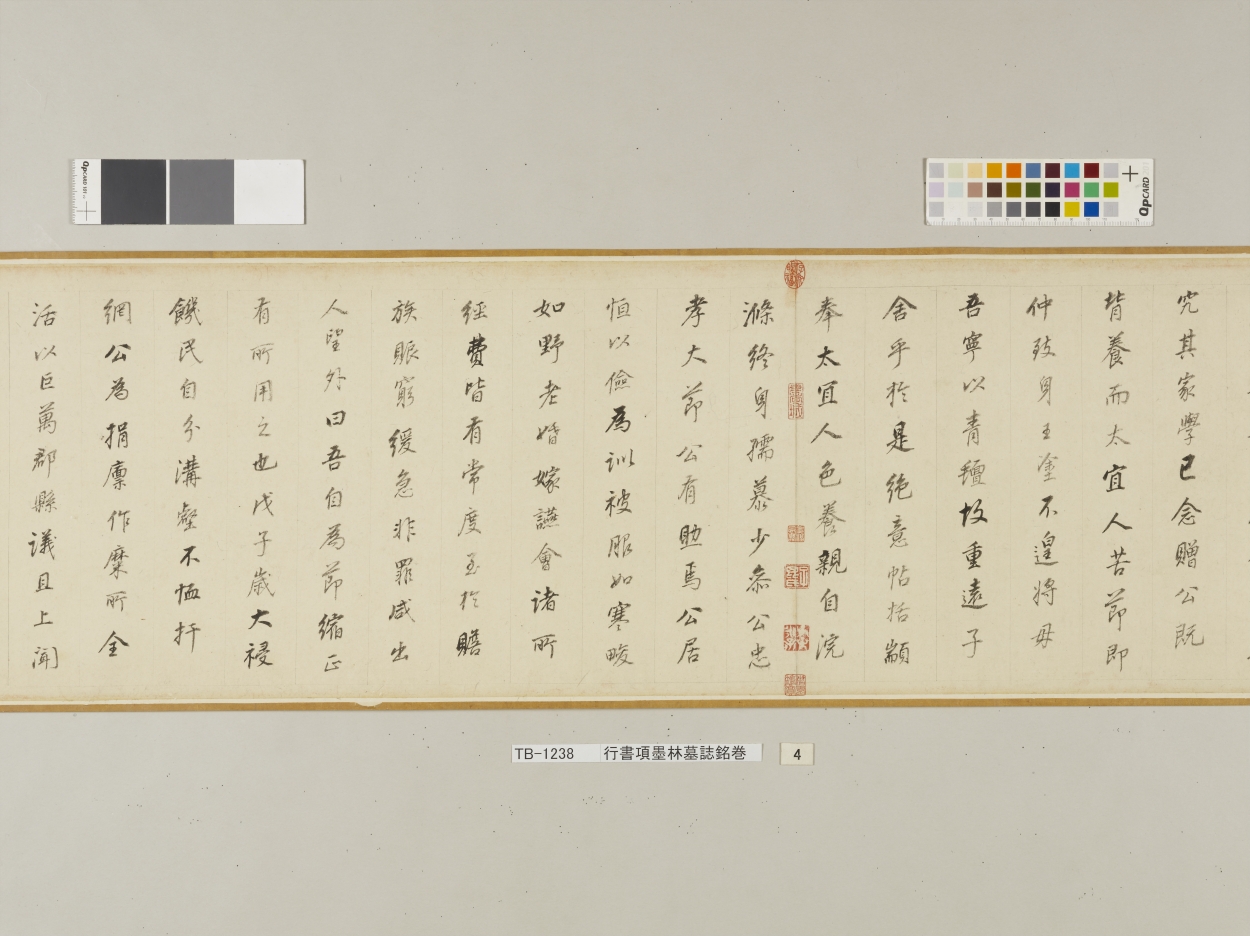 究其家學已念贈公既
背養而太宜人苦節即
仲致身王塗不遑將母
吾寧以青氊故重遠子
舍乎於是絶意帖括顓
奉太宜人色養親自浣
滌終身孺慕少參公忠
孝大節公有助焉公居
恒以儉為訓被服如寒畯
如野老婚嫁讌會諸所
經費皆有常度至於贍
族賑窮緩急非罪咸出
人望外曰吾自為節縮正
有所用之也戊子歲大祲
饑民自分溝壑不恤扞
網公為捐廩作糜所全
活以巨萬郡縣議且上聞
TB-1238 行書項墨林墓誌銘巻 4
QpCARD
QpCARD